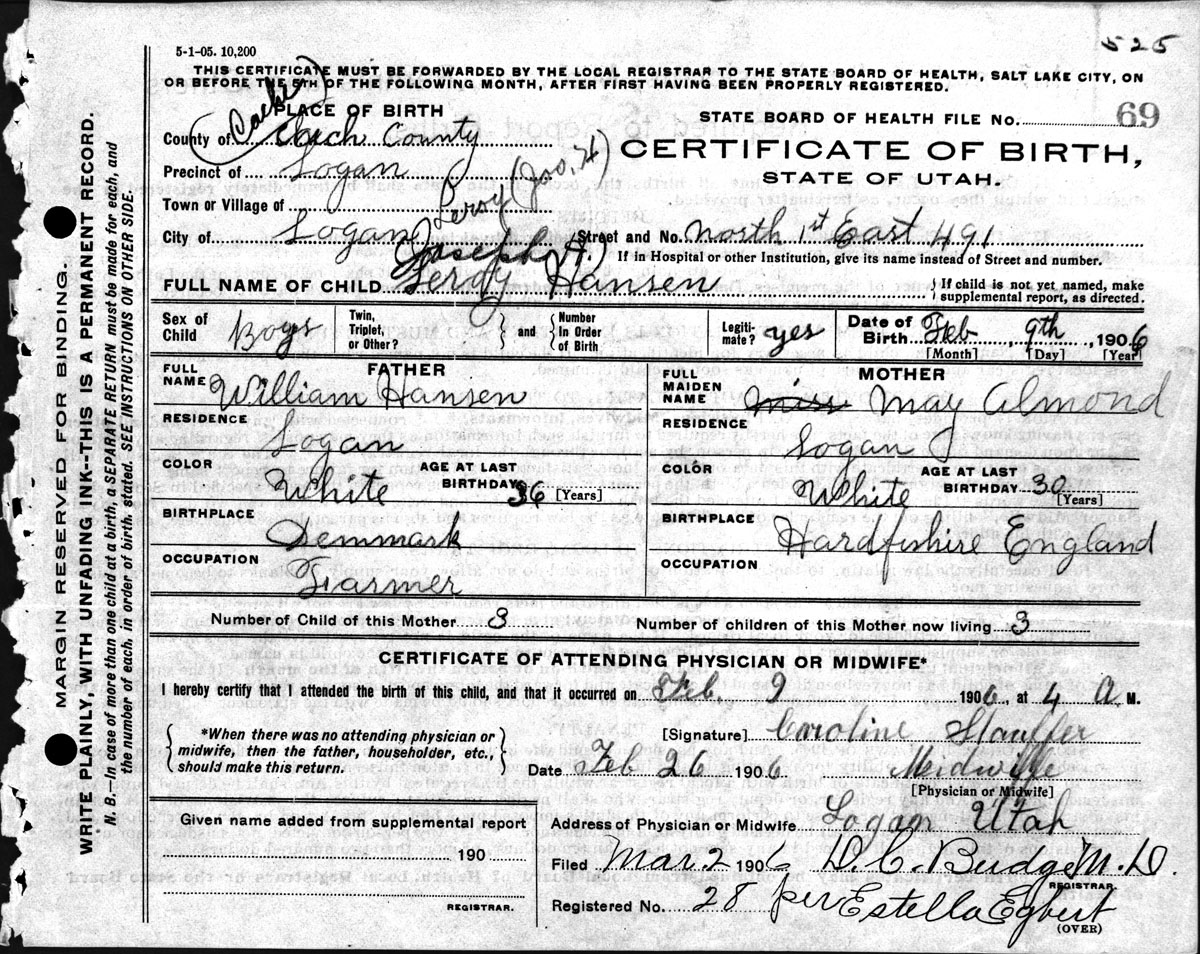 525
5-1-05. 10,200
THIS CERTIFICATE MUST BE FORWARDED BY THE LOCAL REGISTRAR TO THE STATE BOARD OF HEALTH, SALT LAKE CITY, ON
OR BEFORE THE 5TH OF THE FOLLOWING MONTH, AFTER FIRST HAVING BEEN PROPERLY REGISTERED.
PLACE OF BIRTH
STATE BOARD OF HEALTH FILE No. 69
(Cache)
County of Cach County
CERTIFICATE OF BIRTH,
STATE OF UTAH.
Precinct of Logan
Town or Village of
Leroy (Jos. H)
City of Logan Street and No. North 1st East 491
If in Hospital or other Institution, give its name instead of Street and number.
Joseph H.)
FULL NAME OF CHILD Leroy Hansen
If child is not yet named, make
supplemental report, as directed.
Sex of Child Boys Twin, Triplet, or Other? and Number In Order of Birth Legiti- mate? yes Date of Birth Feb 9th, 1906
[Month] [Day] [Year]
FATHER MOTHER
FULL NAME William Hansen FULL MAIDEN NAME miss May Almond
RESIDENCE Logan RESIDENCE Logan
COLOR White AGE AT LAST BIRTHDAY 36 [Years] COLOR White AGE AT LAST BIRTHDAY 30 [Years]
BIRTHPLACE Denmark BIRTHPLACE Hardfishire England
OCCUPATION Farmer OCCUPATION
Number of Child of this Mother 3 Number of children of this Mother now living 3
CERTIFICATE OF ATTENDING PHYSICIAN OR MIDWIFE*
I hereby certify that I attended the birth of this child, and that it occurred on Feb. 9 1906, at 4 A M.
*When there was no attending physician or
midwife, then the father, householder, etc.,
should make this return.
[Signature] Caroline Stauffer
Date Feb 26 1906. Midwife
[Physician or Midwife]
Given name added from supplemental report
190
REGISTRAR.
Address of Physician or Midwife Logan Utah
Filed Mar. 2 1906 D. C. Budge M. D.
REGISTRAR.
Registered No. 28 per Estella Egbert
(OVER)
MARGIN RESERVED FOR BINDING.
WRITE PLAINLY, WITH UNFADING INK--THIS IS A PERMANENT RECORD.
N. B.—In case of more than one child at a birth, a SEPARATE RETURN must be made for each, and
the number of each, in order of birth, stated. SEE INSTRUCTIONS ON OTHER SIDE.